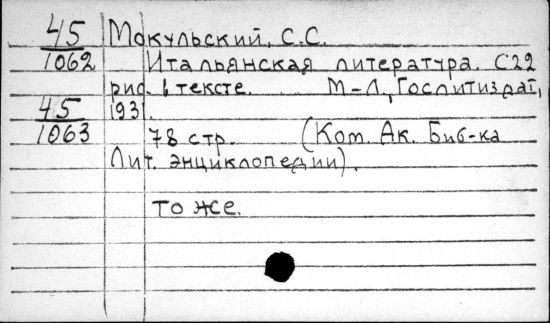 45 Мокульский, С.С.
1062 Итальянская литература. С 22
рис. в тексте. М-Л., Гослитиздат,
45 193 .
1063 78 стр. (Ком. Ак. Биб-ка
Лит. энциклопедии).
то же.